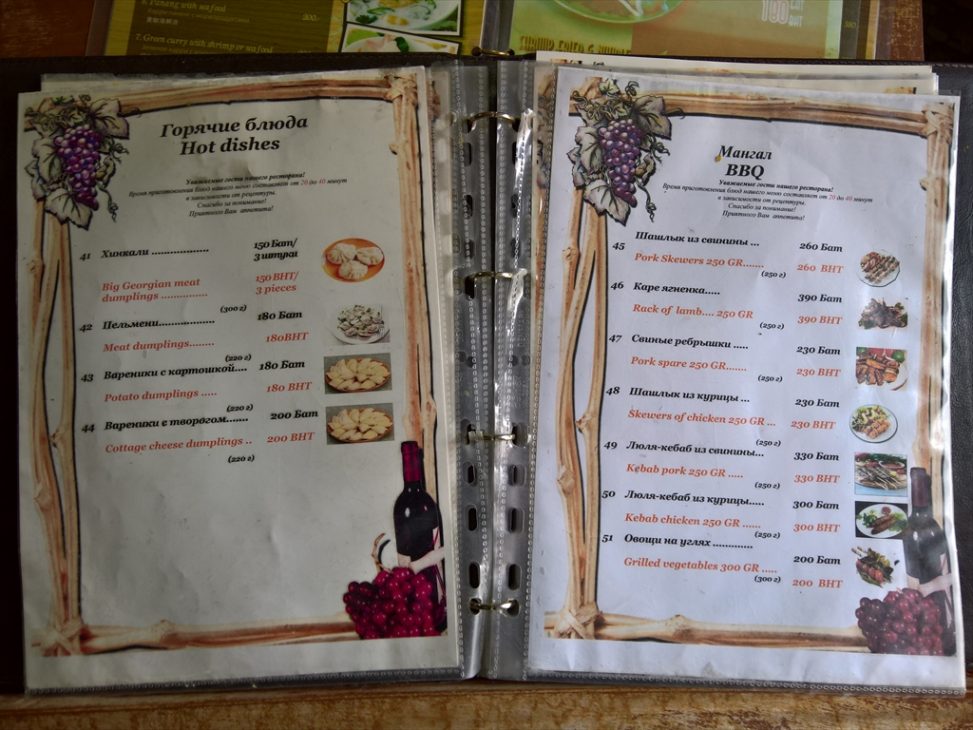 6. Panang with sea food
200.-
7. Green curry with shrimp or sea food
100
BHT
Горячие блюда
Hot dishes
Уважаемые гости нашего ресторана!
Время приготовления блюд нашего меню составляет от 20 до 40 минут
в зависимости от рецептуры.
Спасибо за понимание!
Приятного Вам аппетита!
41 Хинкали .................. 150 Бат/
3 штуки
Big Georgian meat 150 BHT/
dumplings .............. 3 pieces
(300 г)
42 Пельмени.................. 180 Бат
Meat dumplings........ 180BHT
(220 г)
43 Вареники с картошкой.... 180 Бат
Potato dumplings ..... 180 BHT
(220 г)
44 Вареники с творогом....... 200 Бат
Cottage cheese dumplings .. 200 BHT
(220 г)
Мангал
BBQ
Уважаемые гости нашего ресторана!
Время приготовления блюд нашего меню составляет от 20 до 40 минут
в зависимости от рецептуры.
Спасибо за понимание!
Приятного Вам аппетита!
45 Шашлык из свинины ... 260 Бат
Pork Skewers 250 GR....... 260 BHT
(250 г)
46 Каре ягненка..... 390 Бат
Rack of lamb.... 250 GR 390 BHT
(250 г)
47 Свиные ребрышки ..... 230 Бат
Pork spare 250 GR....... 230 BHT
(250 г)
48 Шашлык из курицы ... 230 Бат
Skewers of chicken 250 GR ... 230 BHT
(250 г)
49 Люля-кебаб из свинины... 330 Бат
Kebab pork 250 GR ..... 330 BHT
(250 г)
50 Люля-кебаб из курицы..... 300 Бат
Kebab chicken 250 GR ...... 300 BHT
(250 г)
51 Овощи на углях ............. 200 Бат
Grilled vegetables 300 GR ..... 200 BHT
(300 г)